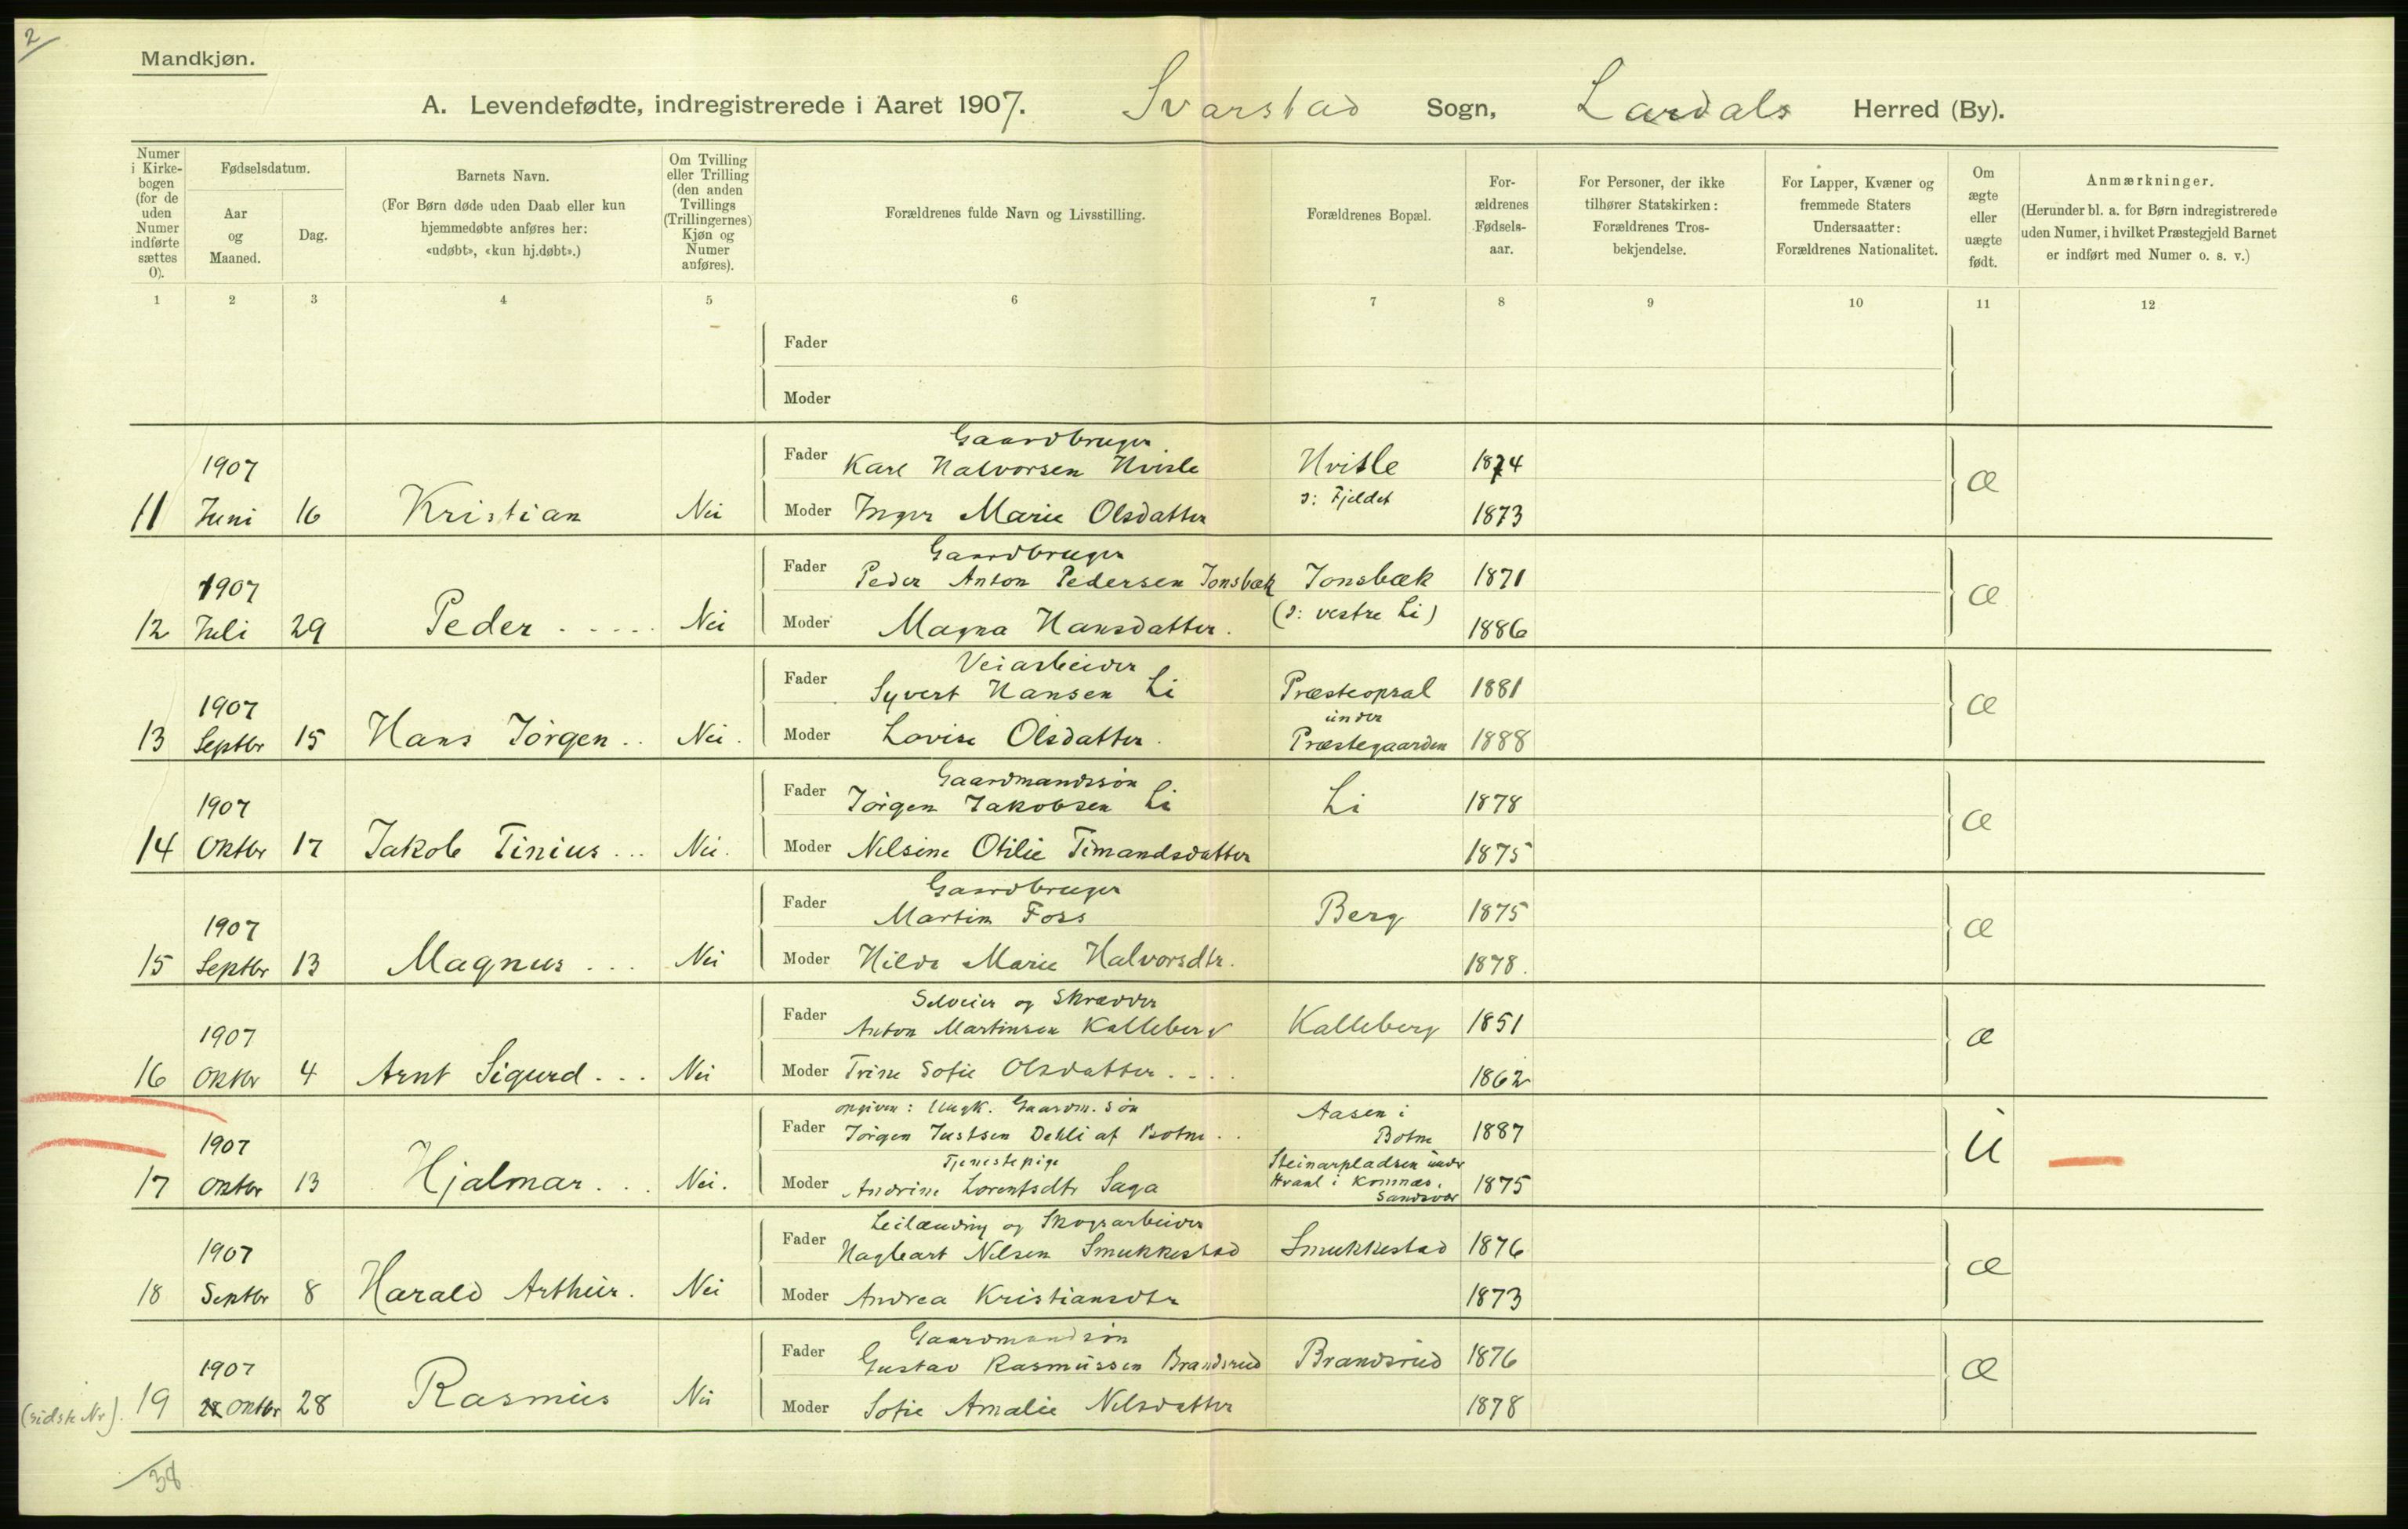 2
Mandkjøn.
A. Levendefødte, indregistrerede i Aaret 1907. Svarstad Sogn, Lardals Herred (By).
Numer i Kirkebogen (for de uden Numer indførte sættes 0).
Fødselsdatum.
Aar og Maaned.
Dag.
Barnets Navn.
(For Børn døde uden Daab eller kun hjemmedøbte anføres her: «udøbt», «kun hj.døbt».)
Om Tvilling eller Trilling (den anden Tvillings (Trillingernes) Kjøn og Numer anføres).
Forældrenes fulde Navn og Livsstilling.
Forældrenes Bopæl.
Forældrenes Fødselsaar.
For Personer, der ikke tilhører Statskirken: Forældrenes Trosbekjendelse.
For Lapper, Kvæner og fremmede Staters Undersaatter: Forældrenes Nationalitet.
Om ægte eller uægte født.
Anmærkninger.
(Herunder bl. a. for Børn indregistrerede uden Numer, i hvilket Præstegjeld Barnet er indført med Numer o. s. v.)
1 2 3 4 5 6 7 8 9 10 11 12
Fader
Moder
Gaardbruger
1907 Fader Karl Halvorsen Hvisle Hvitle 1874 æ
ɔ: Fjeldet
11 Juni 16 Kristian Nei Moder Inger Marie Olsdatter 1873
Gaardbruger
1907 Fader Peder Anton Pedersen Jonsbæk Jonsbæk 1871 æ
(ɔ: vestre Li)
12 Juli 29 Peder ..... Nei Moder Magna Hansdatter. 1886
Veiarbeider
1907 Fader Syvert Hansen Li Præsteopsal 1881 æ
under
13 Septbr 15 Hans Jörgen .. Nei. Moder Lovise Olsdatter. Præstegaarden 1888
Gaardmandssön
1907 Fader Jörgen Jakobsen Li Li 1878 æ
14 Oktbr 17 Jakob Tinius ... Nei. Moder Nilsine Otilie Timandsdatter 1875
Gaardbruger
1907 Fader Martin Foss Berg 1875 æ
15 Septbr 13 Magnus ... Nei Moder Hilda Marie Halvorsdtr. 1878.
Selveier og Skrædder
1907 Fader Anton Martinsen Kalleberg Kalleberg 1851 æ
16 Oktbr 4 Arnt Sigurd ... Nei Moder Trine Sofie Olsdatter.... 1862
opgiven: Ungk. Gaardm. sön Aasen i
1907 Fader Jörgen Justsen Dehli af Botne .. Botne 1887 U
Tjenestepige Steinarpladsen under
17 Oktbr 13 Hjalmar ... Nei. Moder Andrine Lorentsdtr Saga Hvaal i Komnæs, Sandsvær 1875
Leilænding og Skogsarbeider
1907 Fader Hagbart Nilsen Smukkestad Smukkestad 1876 æ
18 Septbr 8 Harald Arthur. Nei Moder Andrea Kristiansdtr 1873
Gaardmandsön
1907 Fader Gustav Rasmussen Brandsrud Brandsrud 1876 æ
(sidste Nr). 19 28 Oktbr 28 Rasmus Nei Moder Sofie Amalie Nilsdatter 1878
38